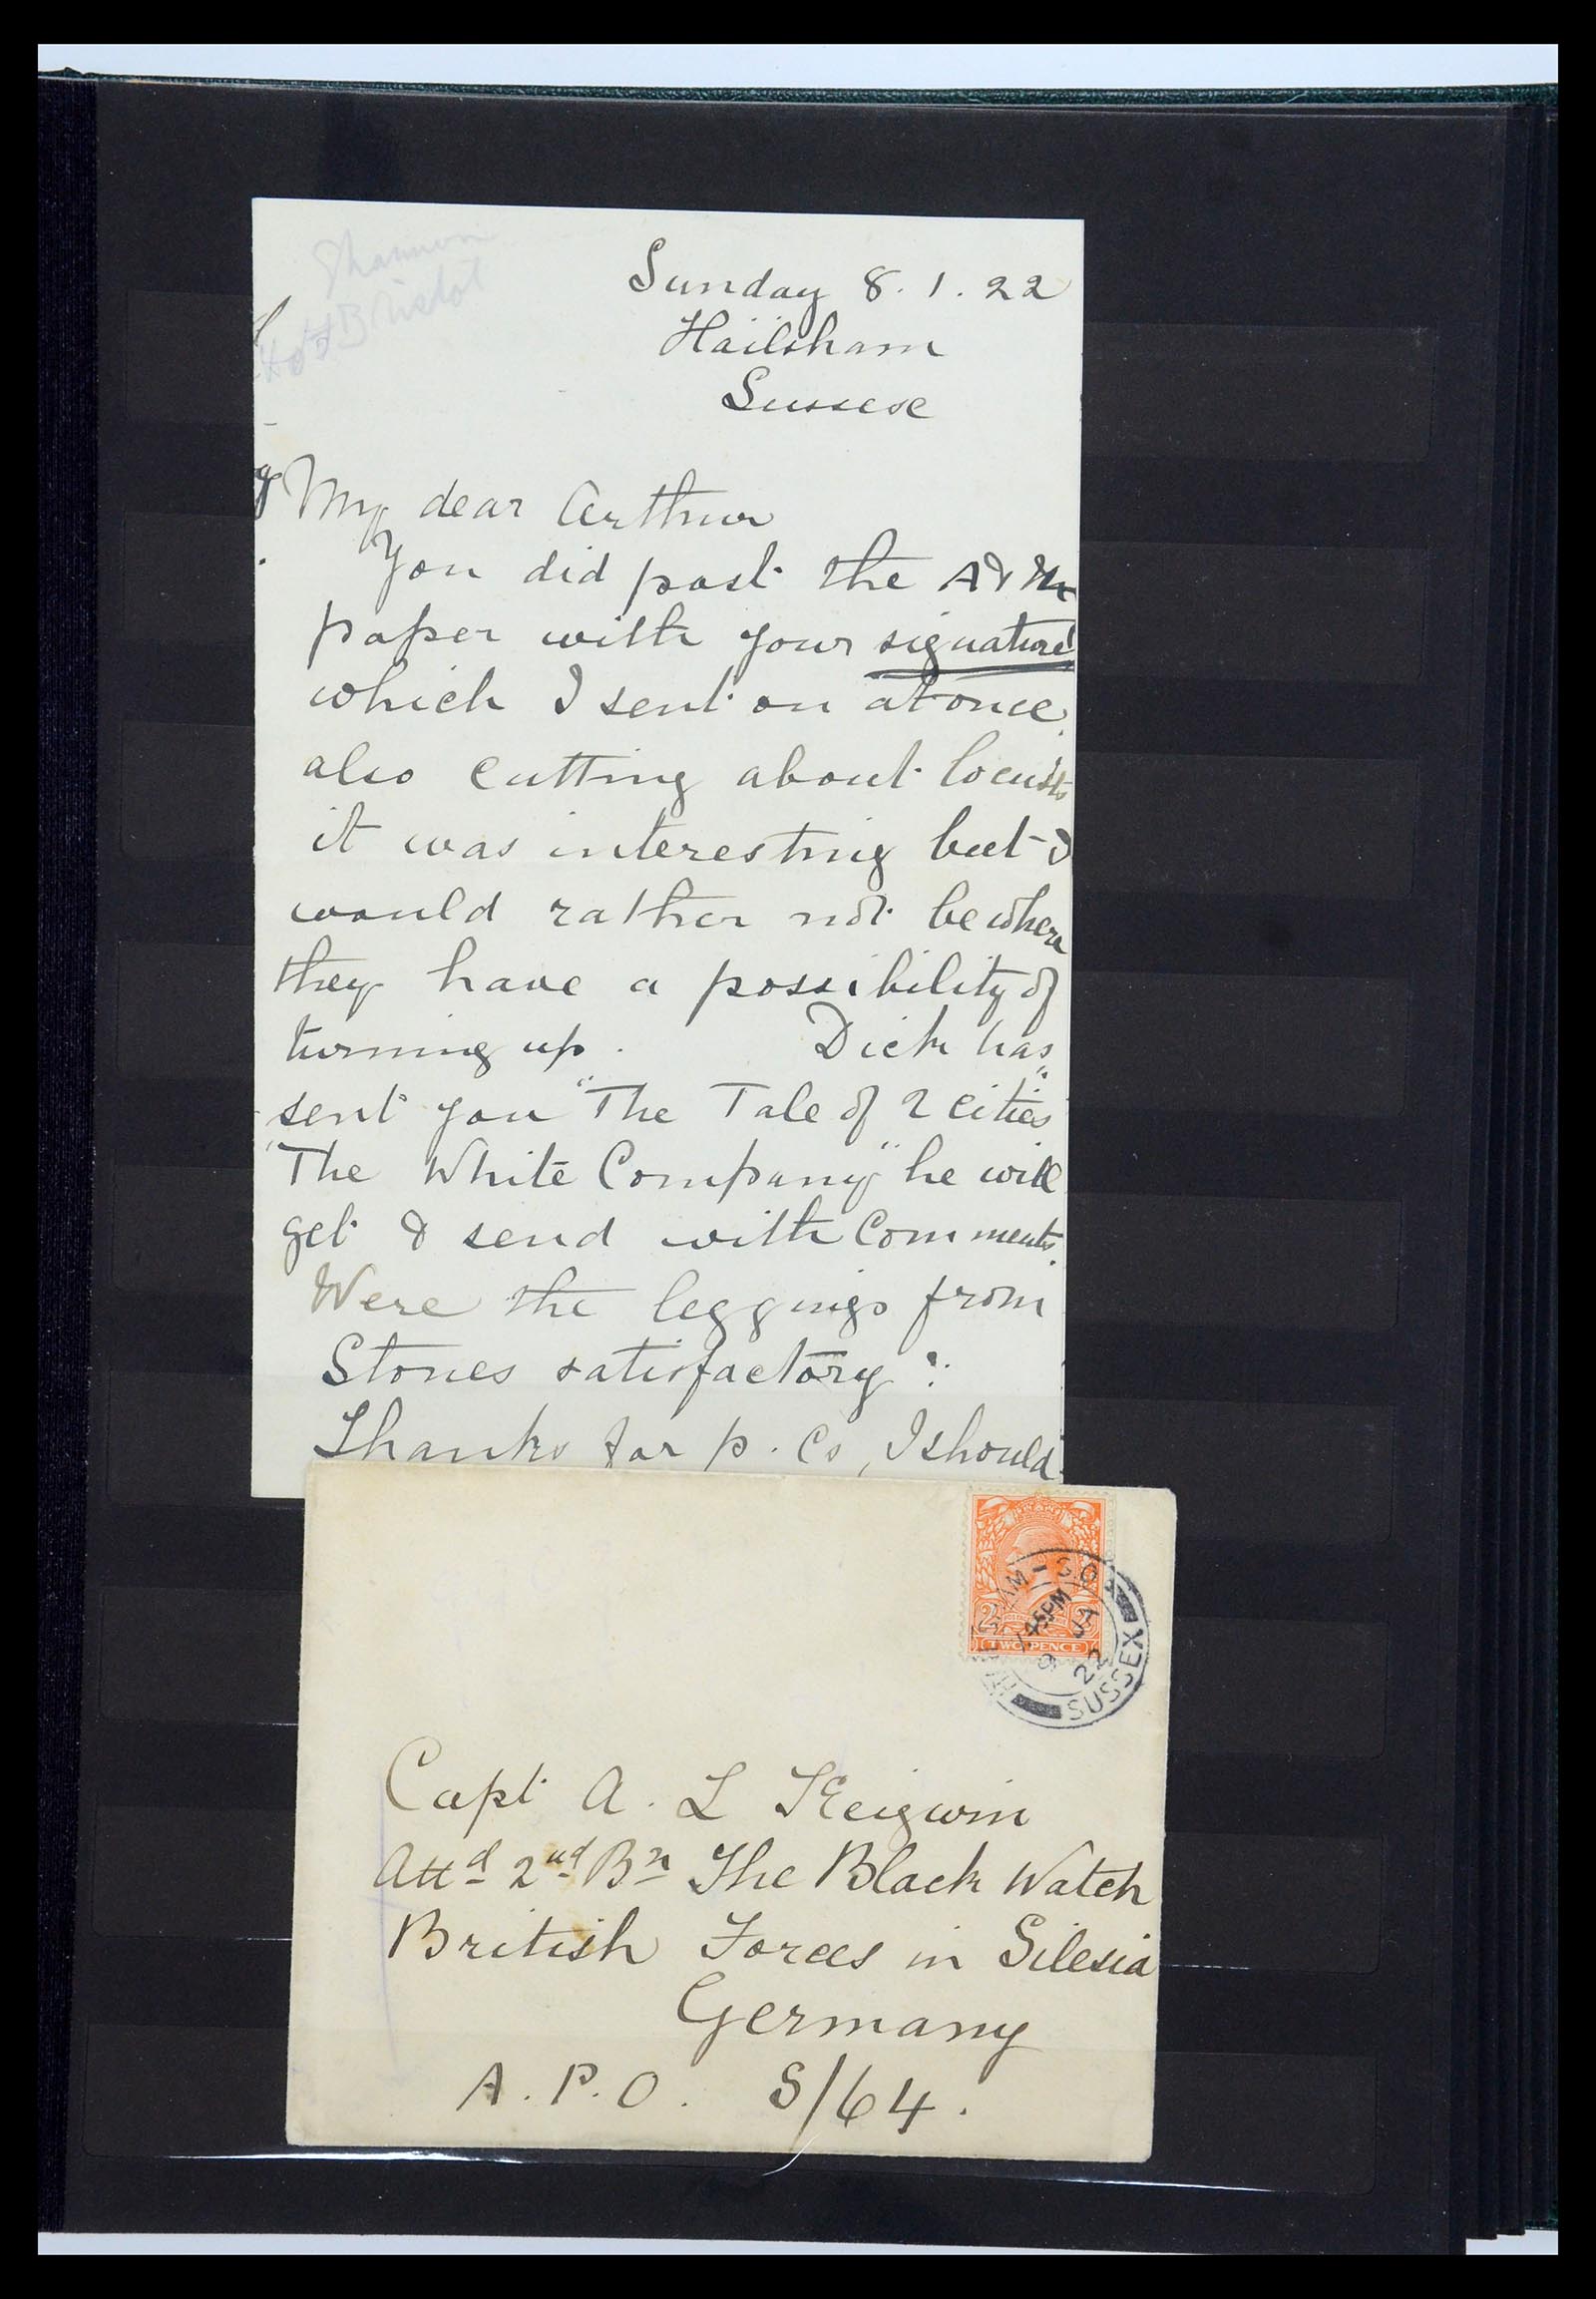 Sunday 8.1.22
Hailsham
Sussex
My dear Arthur
You did post the A &
paper with your signature
which I sent on at once
also cutting about locusts
it was interesting but I
would rather not be where
they have a possibility of
turning up. Dick has
sent you "The Tale of 2 cities"
"The White Company" he will
get & send with Comments.
Were the leggings from
Stones satisfactory?
Thanks for p.cs, I should
HAILSHAM
1 45PM
9 JA
22
SUSSEX
TWO PENCE
Capt A. L Keigwin
Attd 2nd Bn The Black Watch
British Forces in Silesia
Germany
A.P.O. S/64.